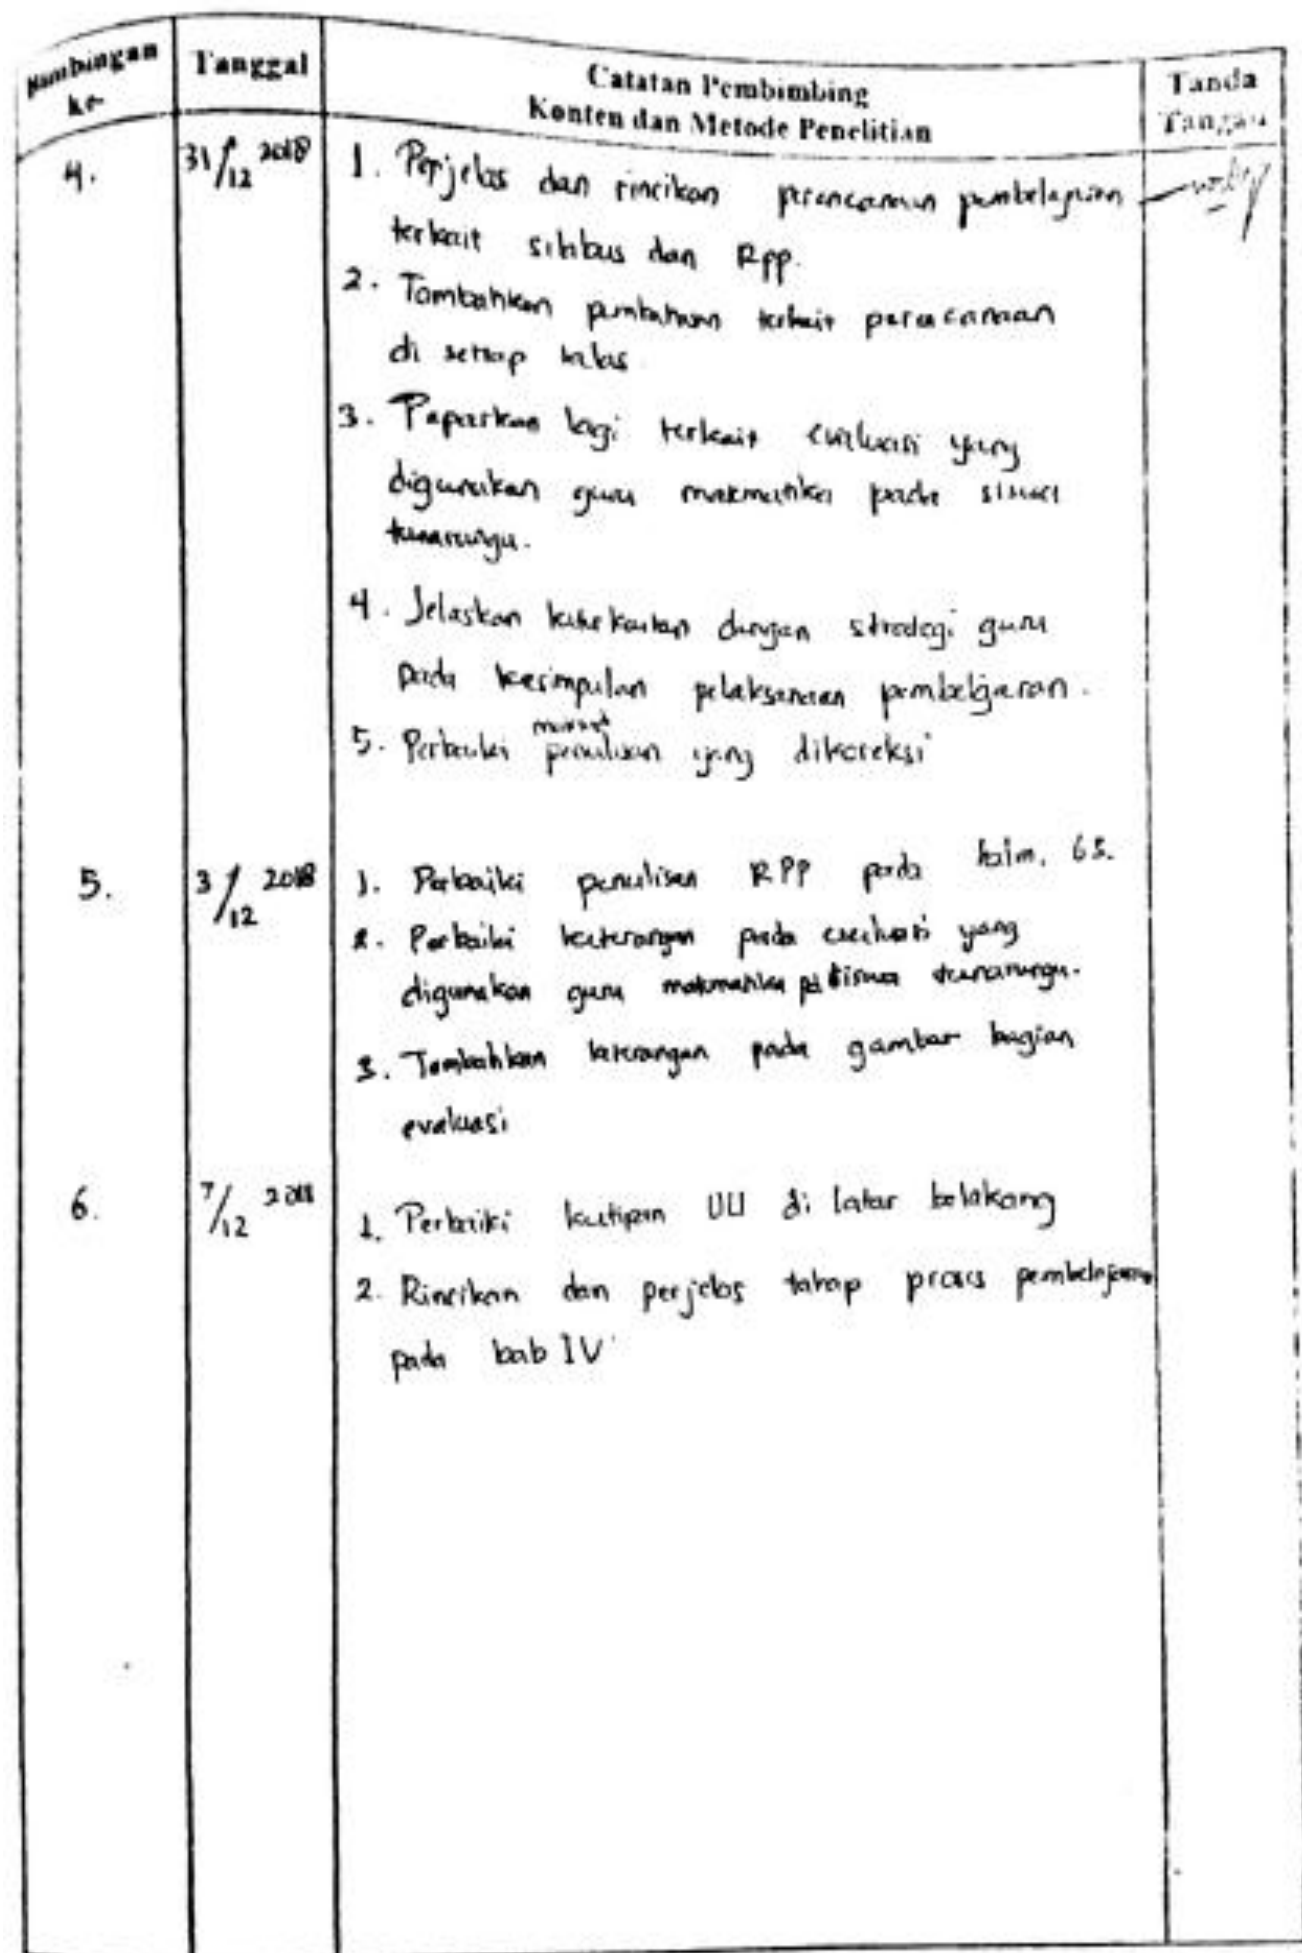 Bimbingan ke-
Tanggal
Catatan Pembimbing
Konten dan Metode Penelitian
Tanda
Tangan
4.
31/12 2018
1. Perjelas dan rincikan perencanaan pembelajaran
terkait silabus dan RPP.
2. Tambahkan pembahasan terkait perencanaan
di setiap kelas
3. Paparkan lagi terkait evaluasi yang
digunakan guru matematika pada siswa
tunarungu.
4. Jelaskan keterkaitan dengan strategi guru
pada kesimpulan pelaksanaan pembelajaran.
5. Perbaiki penulisan yang dikoreksi
5.
3/12 2018
1. Perbaiki penulisan RPP pada halm. 65.
2. Perbaiki keterangan pada evaluasi yang
digunakan guru matematika pd siswa tunarungu.
3. Tambahkan keterangan pada gambar bagian
evaluasi
6.
7/12 2018
1. Perbaiki kutipan UU di latar belakang
2. Rincikan dan perjelas tahap proses pembelajaran
pada bab IV